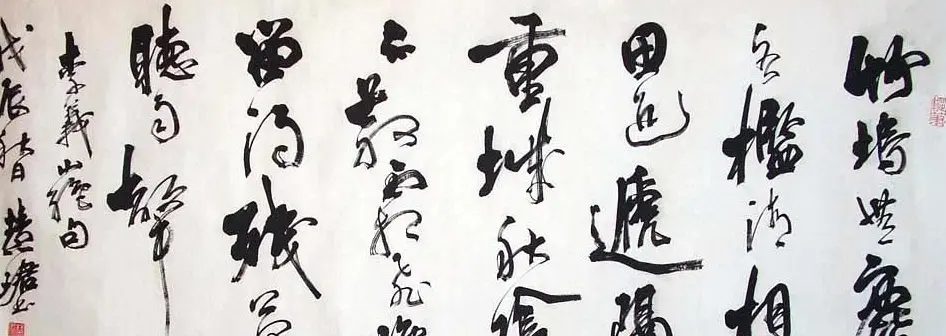 竹塢無塵
水檻清相
思迢遞隔
重城秋陰
不散霜飛晚
留得殘荷
聽雨聲
李義山絕句
戊辰秋日慧珺书